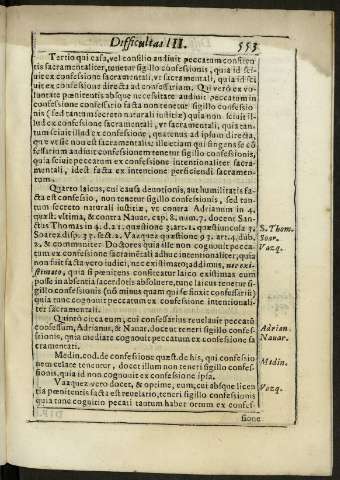 Difficultas III. 553
Tertio qui casu, vel consilio audiuit peccatum confiten
tis sacramentaliter, tenetur sigillo confessionis, quia id sci-
uit ex confessione sacramentali, vt sacramentali, quia id sci-
uit ex confessione directa ad confessarium. Qui verò ex vo-
luntate pœnitentis absque necessitate audiuit peccatum in
confessione confessario facta non tenetur sigillo confessio-
nis (sed tantum secreto naturali iustitię) quia non sciuit il-
lud ex confessione sacramentali, vt sacramentali, quia tan-
tum sciuit illud ex confessione, quatenus ad ipsum directa,
que vt sic non est sacramentalis; ille etiam qui fingens se cõ
fessarium audiuit confessionem tenetur sigillo confessionis,
quia sciuit peccatum ex confessione intentionaliter sacra-
mentali, idest facta ex intentione perficiendi sacramen-
tum.
Quarto laicus, cui causa deuotionis, aut humilitatis fa-
cta est confessio, non tenetur sigillo confessionis, sed tan-
tum secreto naturali iustitię, vt contra Adrianum in 4.
quæst. vltima, & contra Nauar. cap. 8. num. 7. docent San-
ctus Thomas in 4. d. 21. quæstione 3. art. 1. quæstiuncula 3.
Soarez disp. 33. sect. 2. Vazquez quæstione 93. art. 4. dub.
2. & communiter Doctores quia ille non cognouit pecca-
tum ex confessione sacramentali adhuc intentionaliter, quia
non fuit facta vero iudici, nec existimato; addimus, nec exi-
stimato, quia si pœnitens confiteatur laico existimas eum
posse in absentia sacerdotis absoluere, tunc laicus tenetur si-
gillo confessionis (vt minus quam qui se finxit confessariũ)
quia tunc cognouit peccatum ex confessione intentionali-
ter sacramentali.
Quintò circa eum, cui confessarius reuelauit peccatũ
confessum, Adrianus, & Nauar. docent teneri sigillo confes-
sionis, quia mediate cognouit peccatum ex confessione sa
cramentali.
Medin. cod. de confessione quæst. de his, qui confessio
nem celate tenentur, docet illum non teneri sigillo confes-
sionis, quia id non cognouit ex confessione ipsa.
Vazquez vero docet, & optime, eum, cui absque licen
tia pœnitentis facta est reuelatio, teneri sigillo confessionis
quia tunc cognitio peccati tantum habet ortum ex confes-
sione
S. Thom.
Soar.
Vazq.
Adrian.
Nauar.
Medin.
Vazq.